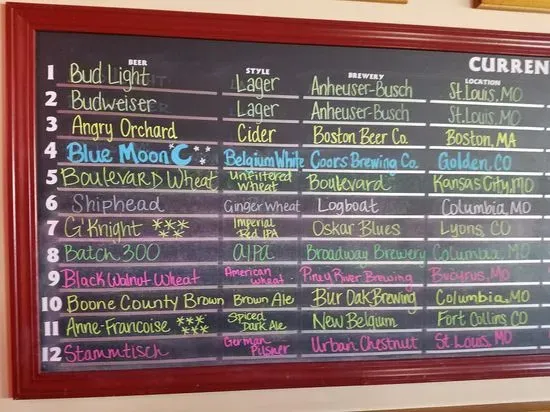 CURREN
BEER STYLE BREWERY LOCATION
1 Bud Light Lager Anheuser-Busch St. Louis, MO
2 Budweiser Lager Anheuser-Busch St. Louis, MO
3 Angry Orchard Cider Boston Beer Co. Boston, MA
4 Blue Moon Belgium White Coors Brewing Co. Golden, CO
5 Boulevard Wheat Unfiltered Wheat Boulevard Kansas City, MO
6 Shiphead Ginger Wheat Logboat Columbia, MO
7 G'Knight Imperial Red IPA Oskar Blues Lyons, CO
8 Batch 300 aIPA Broadway Brewery Columbia, MO
9 Black Walnut Wheat American Wheat Piney River Brewing Bucyrus, MO
10 Boone County Brown Brown Ale Bur Oak Brewing Columbia, MO
11 Anne-Francoise Spiced Dark Ale New Belgium Fort Collins CO
12 Stammtisch German Pilsner Urban Chestnut St. Louis, MO